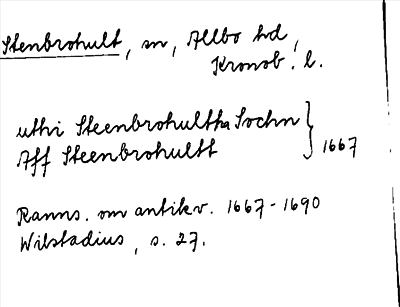 Stenbrohult, sn, Allbo hd,
Kronob. l.
uthi Steenbrohultha Sochn
Aff Steenbrohultt } 1667
Ranns. om antikv. 1667-1690
Wilstadius, s. 27.